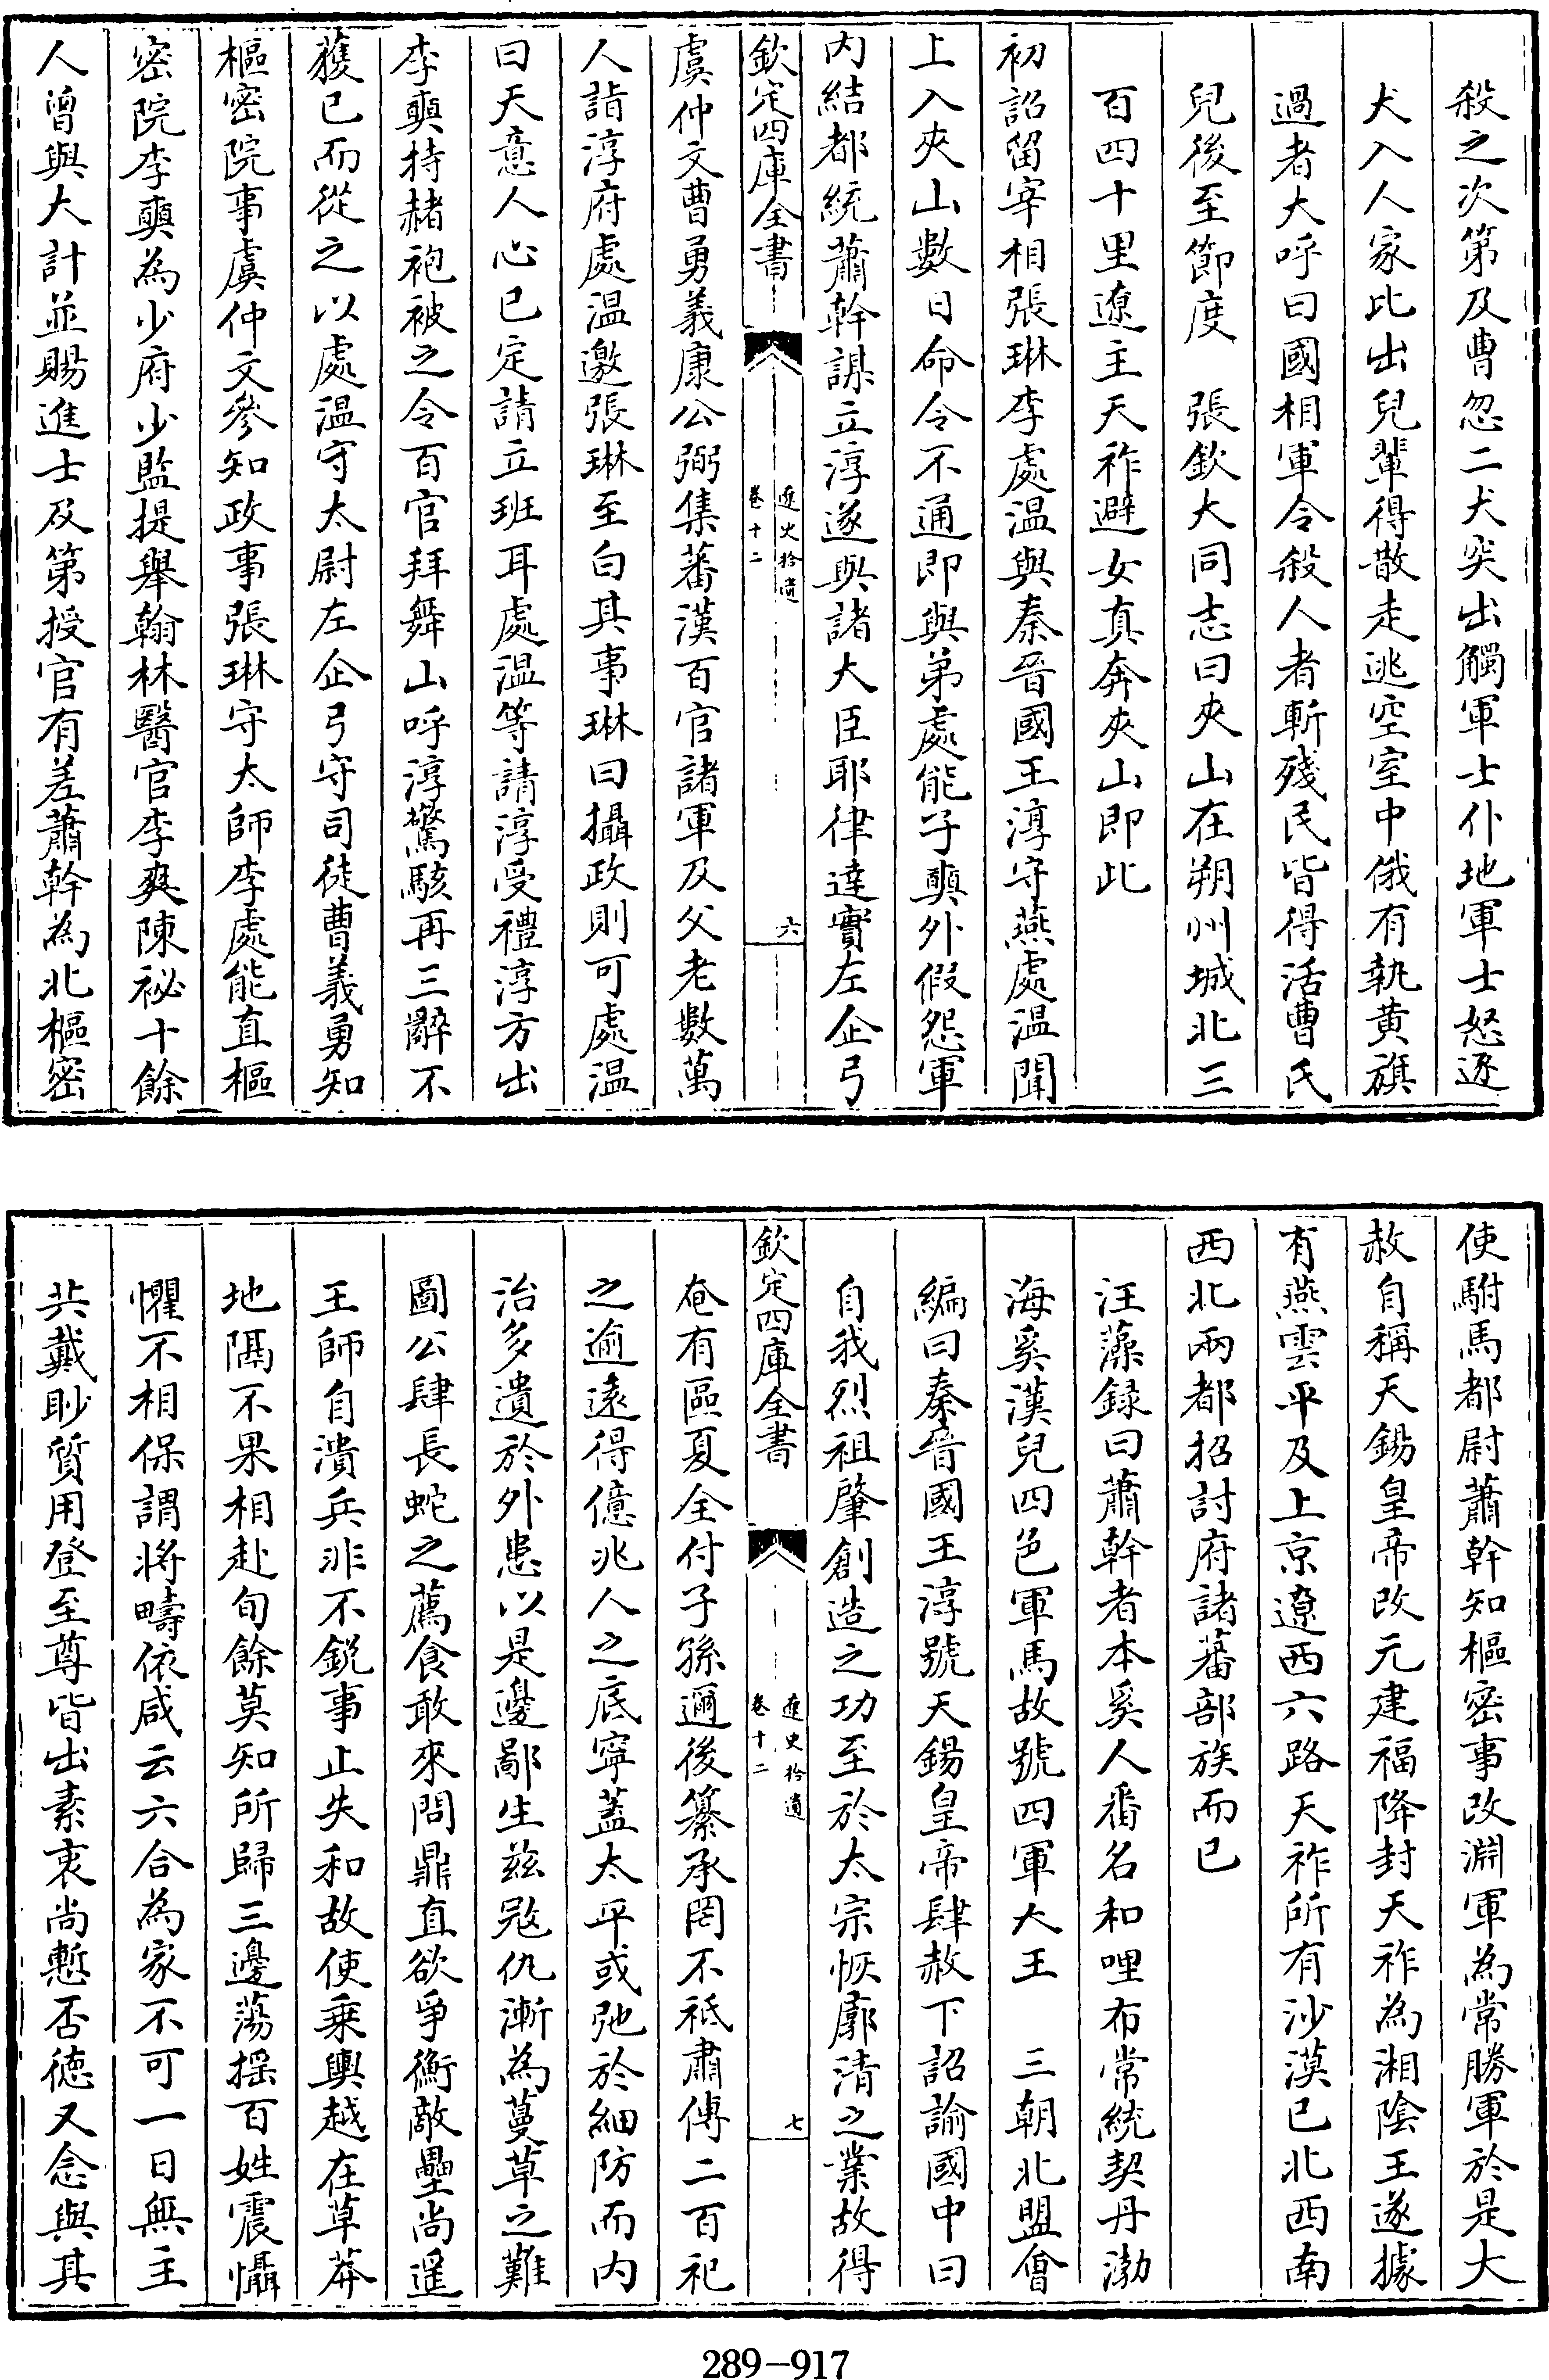 殺之次第及曹忽二犬突出觸軍士仆地軍士怒逐
犬入人家比出兒輩得散走逃空室中俄有執黄旗
過者大呼曰國相軍令殺人者斬殘民皆得活曹氏
兒後至節度　張欽大同志曰夾山在朔州城北三
百四十里遼主天祚避女真奔夾山即此
初詔留宰相張琳李處温與秦晉國王淳守燕處温聞
上入夾山數日命令不通即與弟處能子奭外假怨軍
内結都統蕭幹謀立淳遂與諸大臣耶律達實左企弓
欽定四庫全書
遼史拾遺
卷十二
六
虞仲文曹勇義康公弼集蕃漢百官諸軍及父老數萬
人詣淳府處温邀張琳至白其事琳曰攝政則可處温
曰天意人心已定請立班耳處温等請淳受禮淳方出
李奭持赭袍被之令百官拜舞山呼淳驚駭再三辭不
獲已而從之以處温守太尉左企弓守司徒曹義勇知
樞密院事虞仲文參知政事張琳守太師李處能直樞
密院李奭為少府少監提舉翰林醫官李爽陳祕十餘
人曾與大計並賜進士及第授官有差蕭幹為北樞密
使駙馬都尉蕭幹知樞密事改淵軍為常勝軍於是大
赦自稱天錫皇帝改元建福降封天祚為湘陰王遂據
有燕雲平及上京遼西六路天祚所有沙漠已北西南
西北兩都招討府諸蕃部族而已
汪藻録曰蕭幹者本奚人番名和哩布常統契丹渤
海奚漢兒四色軍馬故號四軍大王　三朝北盟會
編曰秦晉國王淳號天錫皇帝肆赦下詔諭國中曰
自我烈祖肇創造之功至於太宗恢廓清之業故得
欽定四庫全書
遼史拾遺
卷十二
七
奄有區夏全付子孫邇後纂承罔不祇肅傳二百祀
之逾遠得億兆人之底寧蓋太平或弛於細防而内
治多遺於外患以是邊鄙生兹寇仇漸為蔓草之難
圖公肆長蛇之薦食敢來問鼎直欲爭衡敵壘尚遥
王師自潰兵非不鋭事止失和故使乗輿越在草莽
地隔不果相赴旬餘莫知所歸三邊蕩摇百姓震懾
懼不相保謂將疇依咸云六合為家不可一日無主
共戴眇質用登至尊皆出素衷尚慙否德又念與其
289-917